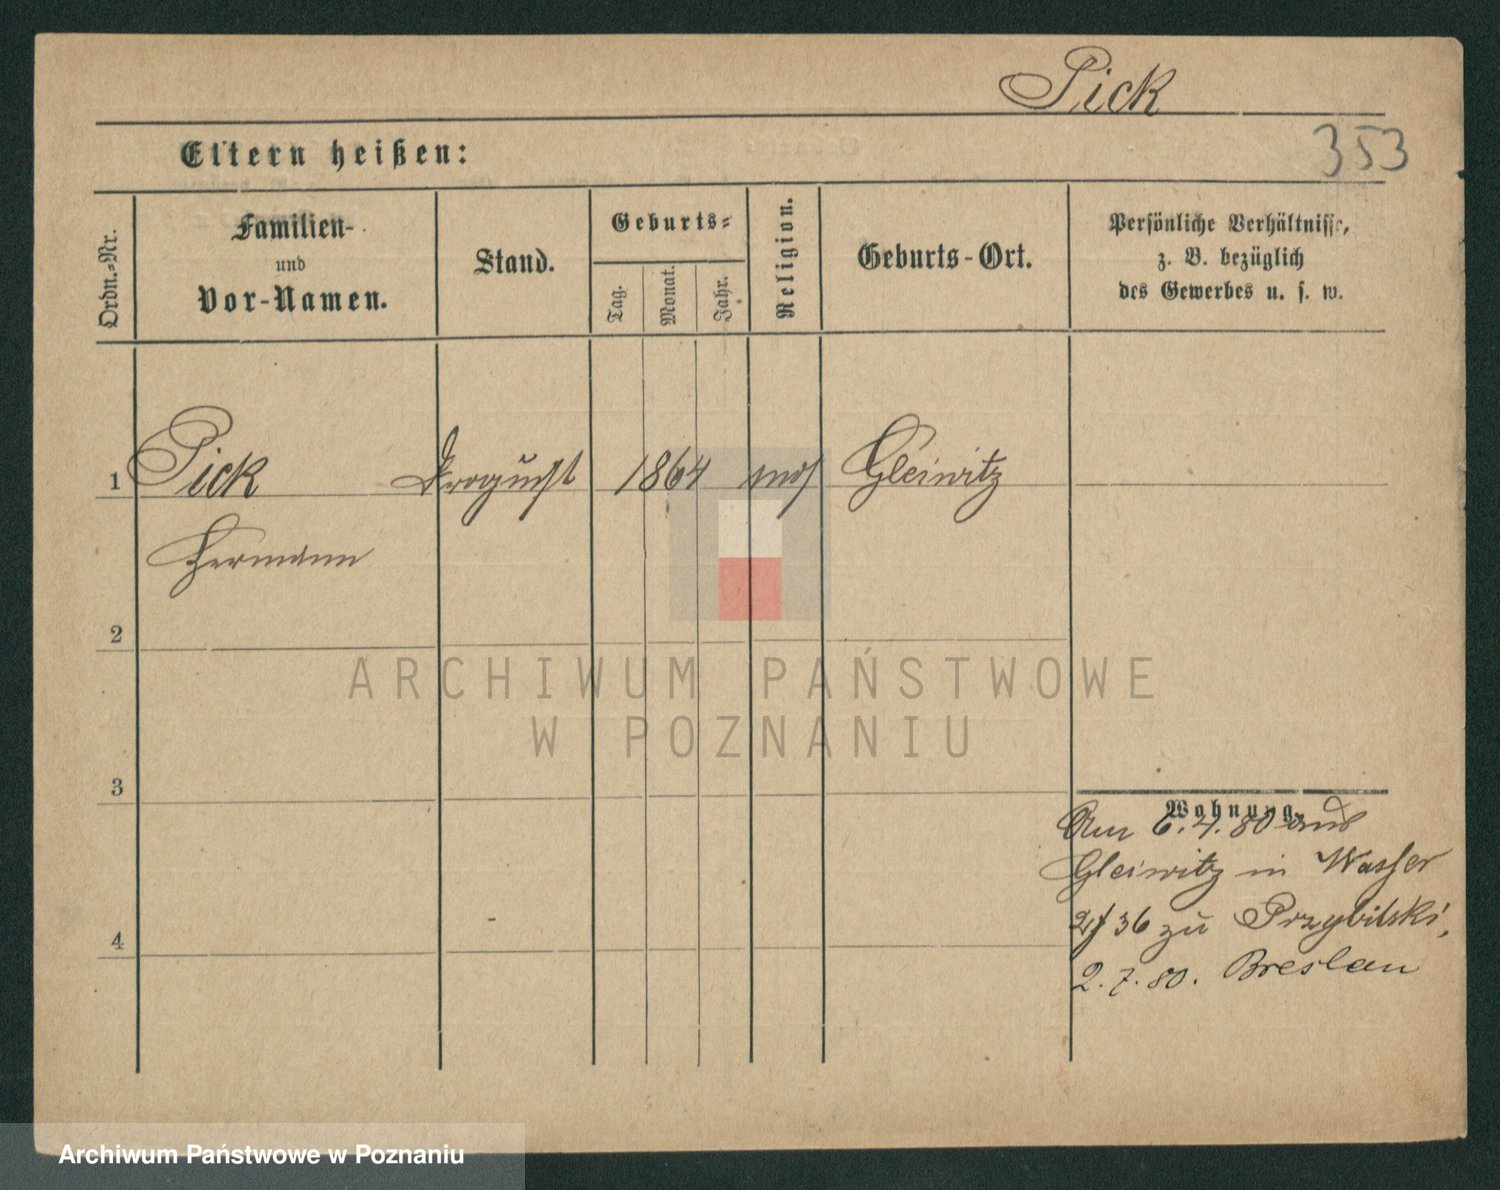 Pick
353
Eltern heißen:
Ordn.=Nr.
Familien-
und
Vor-Namen.
Stand.
Geburts=
Tag.
Monat.
Jahr.
Religion.
Geburts-Ort.
Persönliche Verhältnisse,
z. B. bezüglich
des Gewerbes u. s. w.
1 Pick Drogist 1864 mos Gleiwitz
Hermann
2
3
4
Wohnung.
Am 6.4.80 aus
Gleiwitz in Wasser
36 zu Przybilski,
2.7.80. Breslau
ARCHIWUM PAŃSTWOWE
W POZNANIU
Archiwum Państwowe w Poznaniu